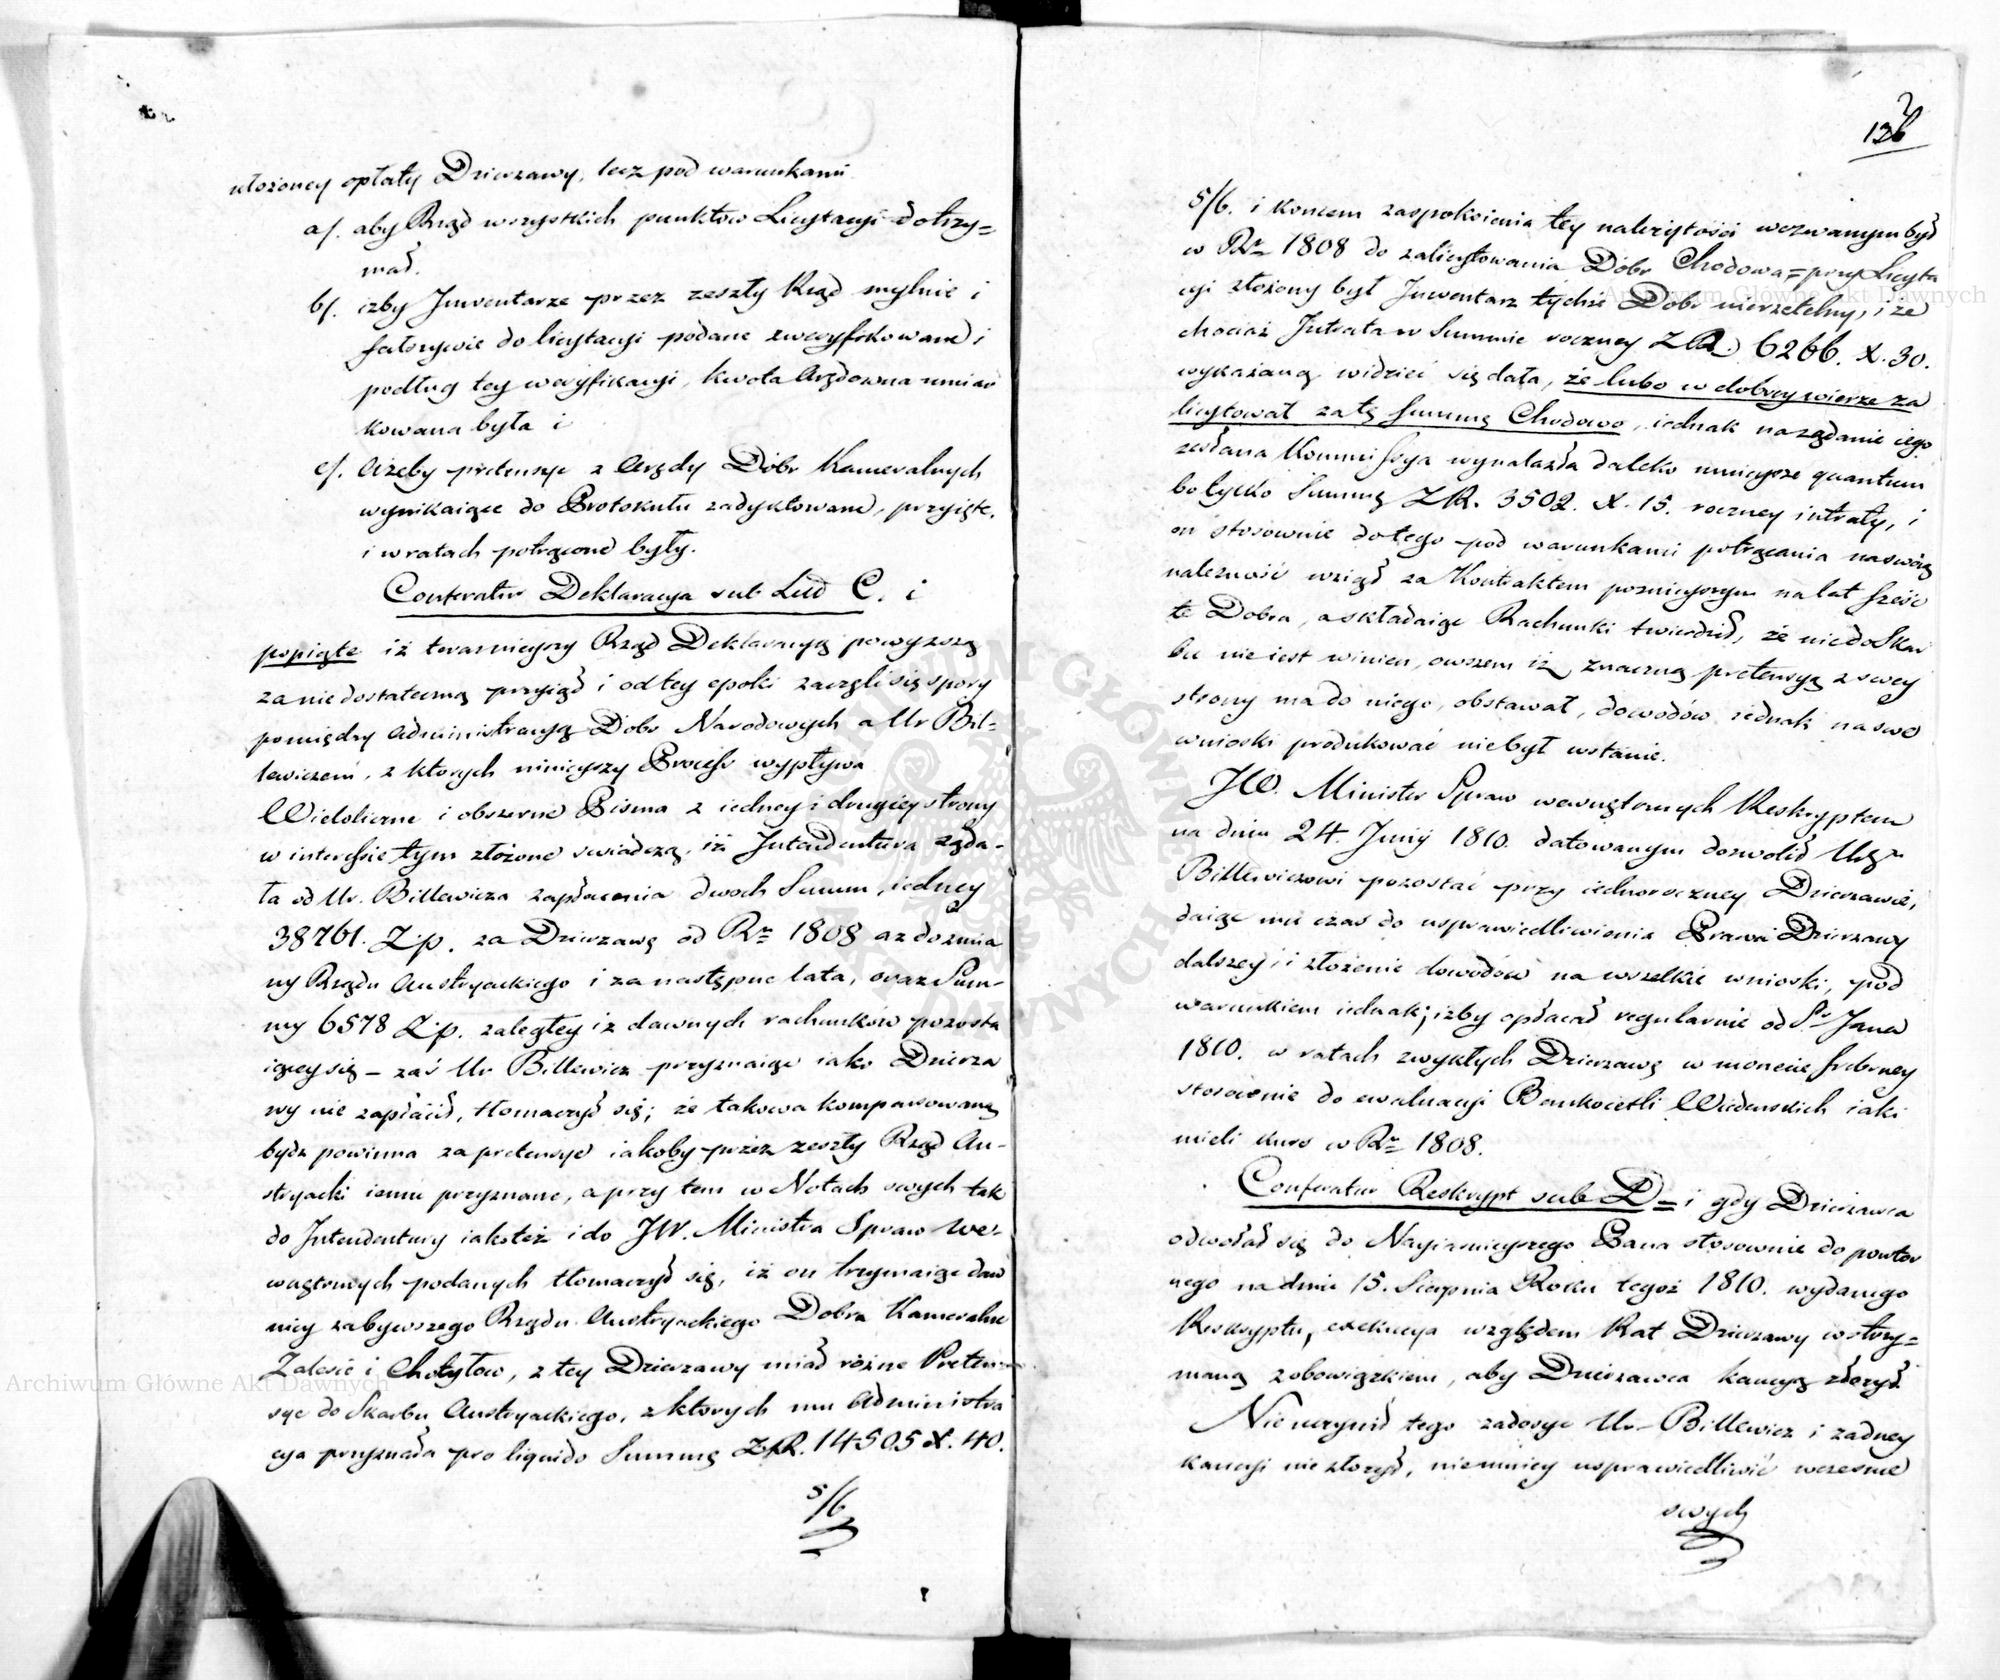 ułożoney opłaty Dzierzawy, lecz pod warunkami
a/. aby Rząd wszystkich punktow Licytacyi dotrzy=
mał.
b/. izby Inwentarze przez zeszły Rząd mylnie i
fałszywie do licytacyi podane zweryfikowane i
podług tey weryfikacyi, kwota Arędowna umiar
kowana była i
c/. Ażeby pretensye z Arędy Dobr Kameralnych
wynikaiące do Protokułu zadyktowane, przyięte,
i w ratach potrącone były.
Conferatur Deklaracya sub Litt C. i
popięte iż terasnieyszy Rząd Deklaracyą powyższą
za niedostateczną przyiął i od tey epoki zaczęli się spory
pomiędzy Administracyą Dobr Narodowych a Ur Bil=
lewiczem, z ktorych ninieyszy Process wypływa
Wieloliczne i obszerne Pisma z iedney i drugiey strony
w interessie tym złożone swiadczą, iż Intendentura żąda-
ła od Ur. Billewicza zapłacenia dwoch Summ, iedney
38761. Zp. za Dzierzawę od Ru 1808 az do zmia
ny Rządu Austryackiego i za następne lata, oraz Sum-
my 6578 Zp. zaległey iz dawnych rachunkow pozosta
iącey się - zaś Ur Billewicz przyznaiąc iako Dzierza
wy nie zapłacił, tłomaczył się; że takowa kompensowaną
bydz powinna za pretensye iakoby przez zeszły Rząd Au-
stryacki iemu przyznane, a przy tem w Notach swych tak
do Intendentury iakoteż i do JW. Ministra Spraw we-
wnętrznych podanych tłomaczył się, iż on trzymaiąc daw
niey za bywszego Rządu Austryackiego Dobra Kameralne
Zalesie i Chotyłow, z tey Dzierzawy miał różne Preten-
sye do Skarbu Austryackiego, z ktorych mu Administra
cya przyznała pro liquido Summę ZR. 14505 X. 40.
5/6
126
2
5/6. i koncem zaspokoienia tey należytości wezwanym był
w Ru 1808 do zalicytowania Dobr Chodowa = przy Licyta
cyi złożony był Inwentarz tychże Dobr nierzetelny, i ze
chociaż Intrata w Summie roczney ZR. 6266. X. 30.
wykazaną widzieć się dała, że lubo w dobrey wierze za
licytował za tę Summę Chodowo, iednak na żądanie iego
zesłana Kommissya wynalazła daleko mnieysze quantum
bo tylko Summę ZR. 3502. X. 15. roczney intraty, i
on stosownie do tego pod warunkami potrącania na swoią
należność wziął za Kontraktem poznieyszym na lat sześć
te Dobra, a składaiąc Rachunki twierdził, że nie do Skar
bu nie iest winien, owszem iż znaczną pretensyą z swey
strony ma do niego, obstawał, dowodów iednak na swe
wnioski produkować nie był wstanie.
JW. Minister Spraw wewnętrznych Reskryptem
na dniu 24. Junÿ 1810. datowanym dozwolił Urgo
Billewiczowi pozostać przy iednoroczney Dzierzawie,
daiąc mu czas do usprawiedliwienia Prawa Dzierzawy
dalszey, i złożenie dowodów na wszelkie wnioski, pod
warunkiem iednak; izby opłacał regularnie od St Jana
1810. w ratach zwykłych Dzierzawę w monecie srebrney
stosownie do ewaluacyi Bankocetli Wiedenskich iaki
mieli kurs w Ru 1808.
Conferatur Reskrypt sub D = i gdy Dzierzawca
odwołał się do Nayiasnieyszego Pana stosownie do powtor
nego na dniu 15. Sierpnia Roku tegoż 1810. wydanego
Reskryptu, exekucya względem Rat Dzierzawy wstrzy=
maną z obowiązkiem, aby Dzierzawca kaucyą złożył.
Nie uczynił tego zadosyc Ur. Billewicz i zadney
kaucyi nie złożył, niemniey usprawiedliwić wczesnie
swych
Archiwum Główne Akt Dawnych
Archiwum Główne Akt Dawnych
ARCHIWUM GŁÓWNE AKT DAWNYCH